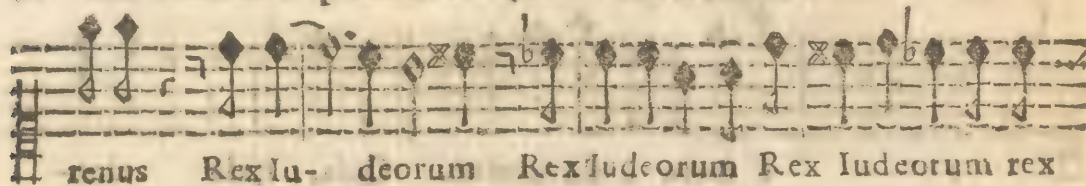 renus Rex Iu- deorum Rex Iudeorum Rex Iudeorum rex